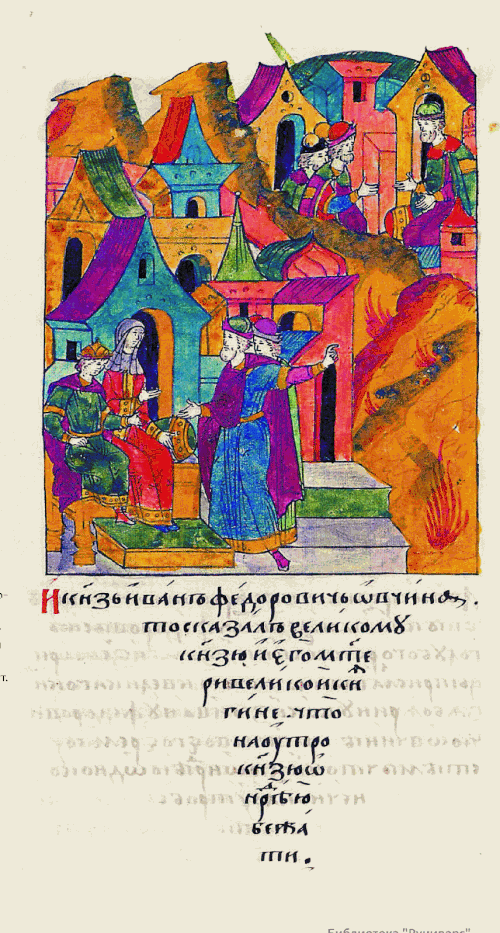 И кн҃зь иванъ федоровичь ѡвчина .
то сказалъ великому
кн҃зю и єго мт҃е
ри великои кн҃
гине . что
наоутро
кн҃зю ѡ
нд҇рѣю
бежа
ти .
Библиотека "Руниверс"